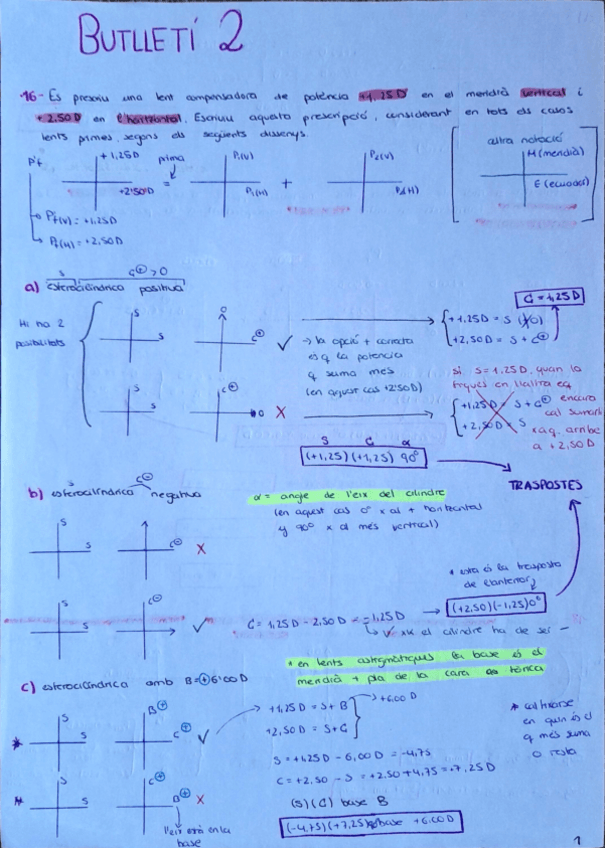 BUTLLETÍ 2
16- Es prescriu una lent compensadora de potència +1,25 D en el meridià vertical i
+2,50 D en l'horitzontal. Escriviu aquesta prescripció, considerant en tots els casos
lents primes, segons els següents dissenys.
P'f
+1,25D
+2'50D
prima
=
P1(V)
P1(H)
+
P2(V)
P2(H)
altra notació
M (meridià)
E (ecuador)
P'f(V) = +1,25D
P'f(H) = +2,50D
S C⊕>0
a) esferocilíndrica positiva
C = 1,25D
Hi ha 2
possibilitats
S
S
C⊕
✓
→ la opció + correcta
és q la potencia
q suma més
(en aquest cas +2'50D)
+1,25D = S
+2,50D = S + C⊕
si S = 1,25D, quan la
encara
cal sumarli
x a q arribe
a +2,50D
S
S
C⊕
0
X
+1,25D = S + C⊕
+2,50D = S
S C α
(+1,25) (+1,25) 90°
TRASPOSTES
S C⊖
b) esferocilíndrica negativa
α = angle de l'eix del cilindre
(en aquest cas 0° x al + horizontal
y 90° x al més vertical)
S
S
C⊖
X
* esta és la trasposta
de l'anterior
S
S
C⊖
✓
C = 1,25D - 2,50D = -1,25D
(+2,50)(-1,25)0°
el cilindre ha de ser -
* en lents astigmàtiques la base és el
meridià + pla de la cara tòrica
c) esferocilíndrica amb B=⊕6'00D
*
S
S
B⊕
C⊕
✓
+1,25D = S + B
+2,50D = S + C
+6,00D
* cal fixarse
en quin és el
q més suma
o resta
S = +1,25D - 6,00D = -4,75
C = +2,50 - S = +2,50 + 4,75 = +7,25D
*
S
S
C⊕
B⊕
X
l'eix està en la
base
(S)(C) base B
(-4,75)(+7,25) base +6,00D
1